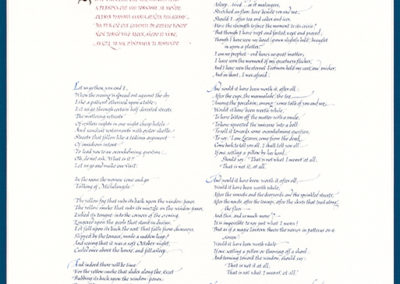 A persona che mai tornasse al mondo,
Questa fiamma staria senza più scosse.
Non tornò vivo alcun, s'i'odo il vero,
Senza tema d'infamia ti rispondo.
Let us go then, you and I,
When the evening is spread out against the sky
Like a patient etherised upon a table;
Let us go, through certain half-deserted streets,
The muttering retreats
Of restless nights in one-night cheap hotels
And sawdust restaurants with oyster-shells:
Streets that follow like a tedious argument
Of insidious intent
To lead you to an overwhelming question . . .
Oh, do not ask, 'What is it?'
Let us go and make our visit.
In the room the women come and go
Talking of Michelangelo.
The yellow fog that rubs its back upon the window-panes,
The yellow smoke that rubs its muzzle on the window-panes
Licked its tongue into the corners of the evening,
Lingered upon the pools that stand in drains,
Let fall upon its back the soot that falls from chimneys,
Slipped by the terrace, made a sudden leap,
And seeing that it was a soft October night,
Curled once about the house, and fell asleep.
And indeed there will be time
For the yellow smoke that slides along the street
Rubbing its back upon the window-panes;
Asleep . . . tired . . . or it malingers,
Stretched on the floor, here beside you and me.
Should I, after tea and cakes and ices,
Have the strength to force the moment to its crisis?
But though I have wept and fasted, wept and prayed,
Though I have seen my head (grown slightly bald) brought
in upon a platter,
I am no prophet – and here's no great matter;
I have seen the moment of my greatness flicker,
And I have seen the eternal Footman hold my coat, and snicker,
And in short, I was afraid.
And would it have been worth it, after all,
After the cups, the marmalade, the tea,
Among the porcelain, among some talk of you and me,
Would it have been worth while,
To have bitten off the matter with a smile,
To have squeezed the universe into a ball
To roll it towards some overwhelming question,
To say: 'I am Lazarus, come from the dead,
Come back to tell you all, I shall tell you all' –
If one, settling a pillow by her head,
Should say: 'That is not what I meant at all.
That is not it, at all.'
And would it have been worth it, after all,
Would it have been worth while,
After the sunsets and the dooryards and the sprinkled streets,
After the novels, after the teacups, after the skirts that trail along
the floor –
And this, and so much more? –
It is impossible to say just what I mean!
But as if a magic lantern threw the nerves in patterns on a
screen:
Would it have been worth while
If one, settling a pillow or throwing off a shawl,
And turning toward the window, should say:
'That is not it at all,
That is not what I meant, at all.'